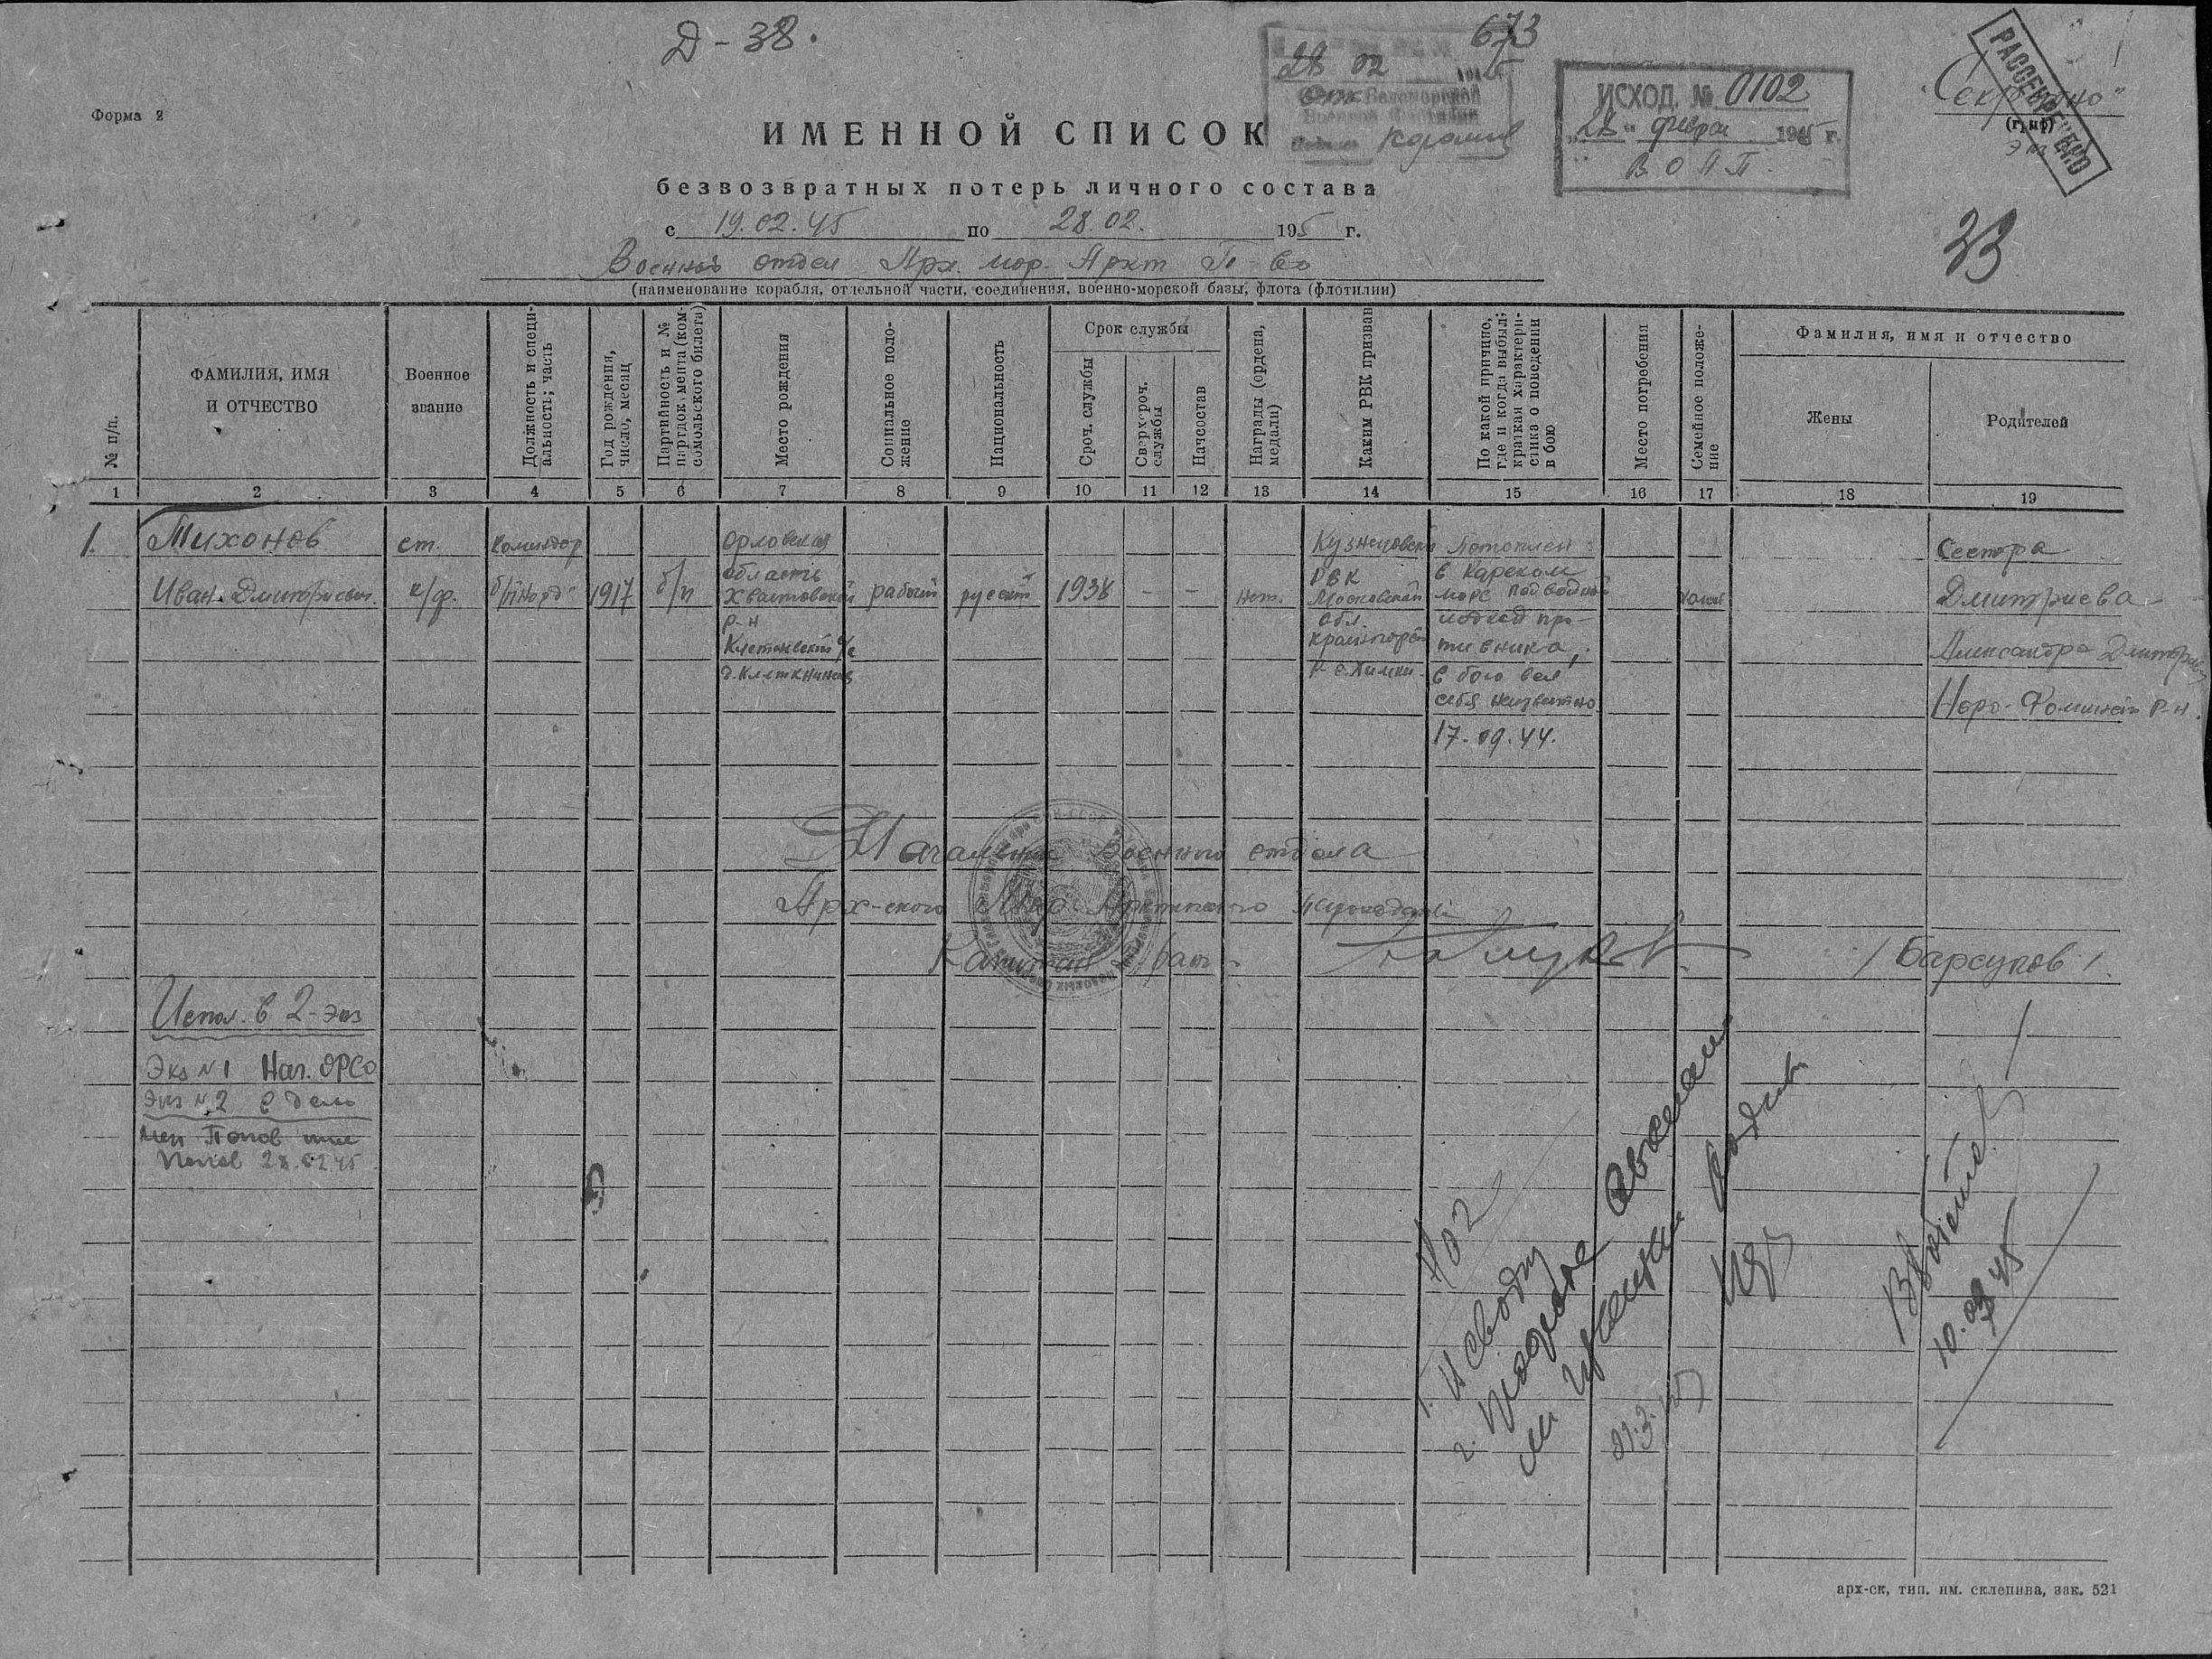 Д-38.
673
28 02
Беломорской
Военной Флотилии
ИСХОД. № 0102
"28" февра 1945 г.
В О А П
"Секретно"
(гриф)
РАССЕКРЕЧЕНО
Форма 2
ИМЕННОЙ СПИСОК
безвозвратных потерь личного состава
с 19.02.45 по 28.02. 195 г.
33
Военный отдел Арх. мор. Аркт П-во
(наименование корабля, отдельной части, соединения, военно-морской базы, флота (флотилии)
№ п/п.
ФАМИЛИЯ, ИМЯ
И ОТЧЕСТВО
Военное
звание
Должность и специ-
альность; часть
Год рождения,
число, месяц
Партийность и №
партдокумента (ком-
сомольского билета)
Место рождения
Социальное поло-
жение
Национальность
Срок службы
Сроч. службы
Сверхсроч.
службы
Начсостав
Награды (ордена,
медали)
Каким РВК призван
По какой причине,
где и когда выбыл;
краткая характери-
стика о поведении
в бою
Место погребения
Семейное положе-
ние
Фамилия, имя и отчество
Жены
Родителей
1 2 3 4 5 6 7 8 9 10 11 12 13 14 15 16 17 18 19
1.
Михонов
Иван Дмитриевич.
ст.
к/ф.
командор
б/п "Норд"
1917
б/п
Орловская
область
Хвастовский
р-н
Клетновский с/с
рабочий
русский
1938
- -
нет.
Кузнецовский
РВК
Московской
обл.
р-н Химки
Потоплен
в Карском
море подводной
лодкой про-
тивника,
в бою вел
себя неизвестно
17.09.44.
холост
Сестра
Дмитриева
Александра Дмитр
Наро-Фоминский р-н.
Начальник Военного отдела
Арх-ского Мор. Арктического пароходства
Капитан
/ Барсуков /.
Испол. в 2-экз
Экз № 1 Нач. ОРСО
Экз № 2 в дело
Попов 28.02.45
НО2
1. И сводку
2.
10.03.45
арх-ск, тип. им. склепина, зак. 521